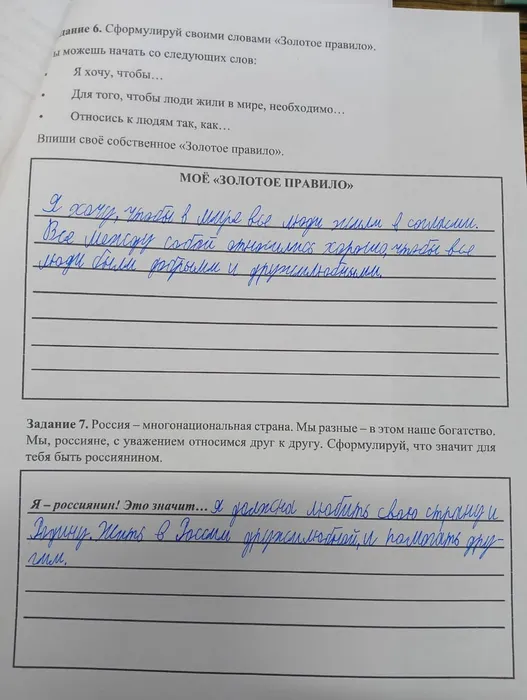 дание 6. Сформулируй своими словами «Золотое правило».
ы можешь начать со следующих слов:
• Я хочу, чтобы…
• Для того, чтобы люди жили в мире, необходимо…
• Относись к людям так, как…
Впиши своё собственное «Золотое правило».
МОЁ «ЗОЛОТОЕ ПРАВИЛО»
Я хочу, чтобы в мире все люди жили в согласии.
Все между собой относились хорошо, чтобы все
люди были добрыми и дружелюбными.
Задание 7. Россия – многонациональная страна. Мы разные – в этом наше богатство.
Мы, россияне, с уважением относимся друг к другу. Сформулируй, что значит для
тебя быть россиянином.
Я – россиянин! Это значит… Я должна любить свою страну и
Родину. Жить в России дружелюбной, и помогать дру-
гим.